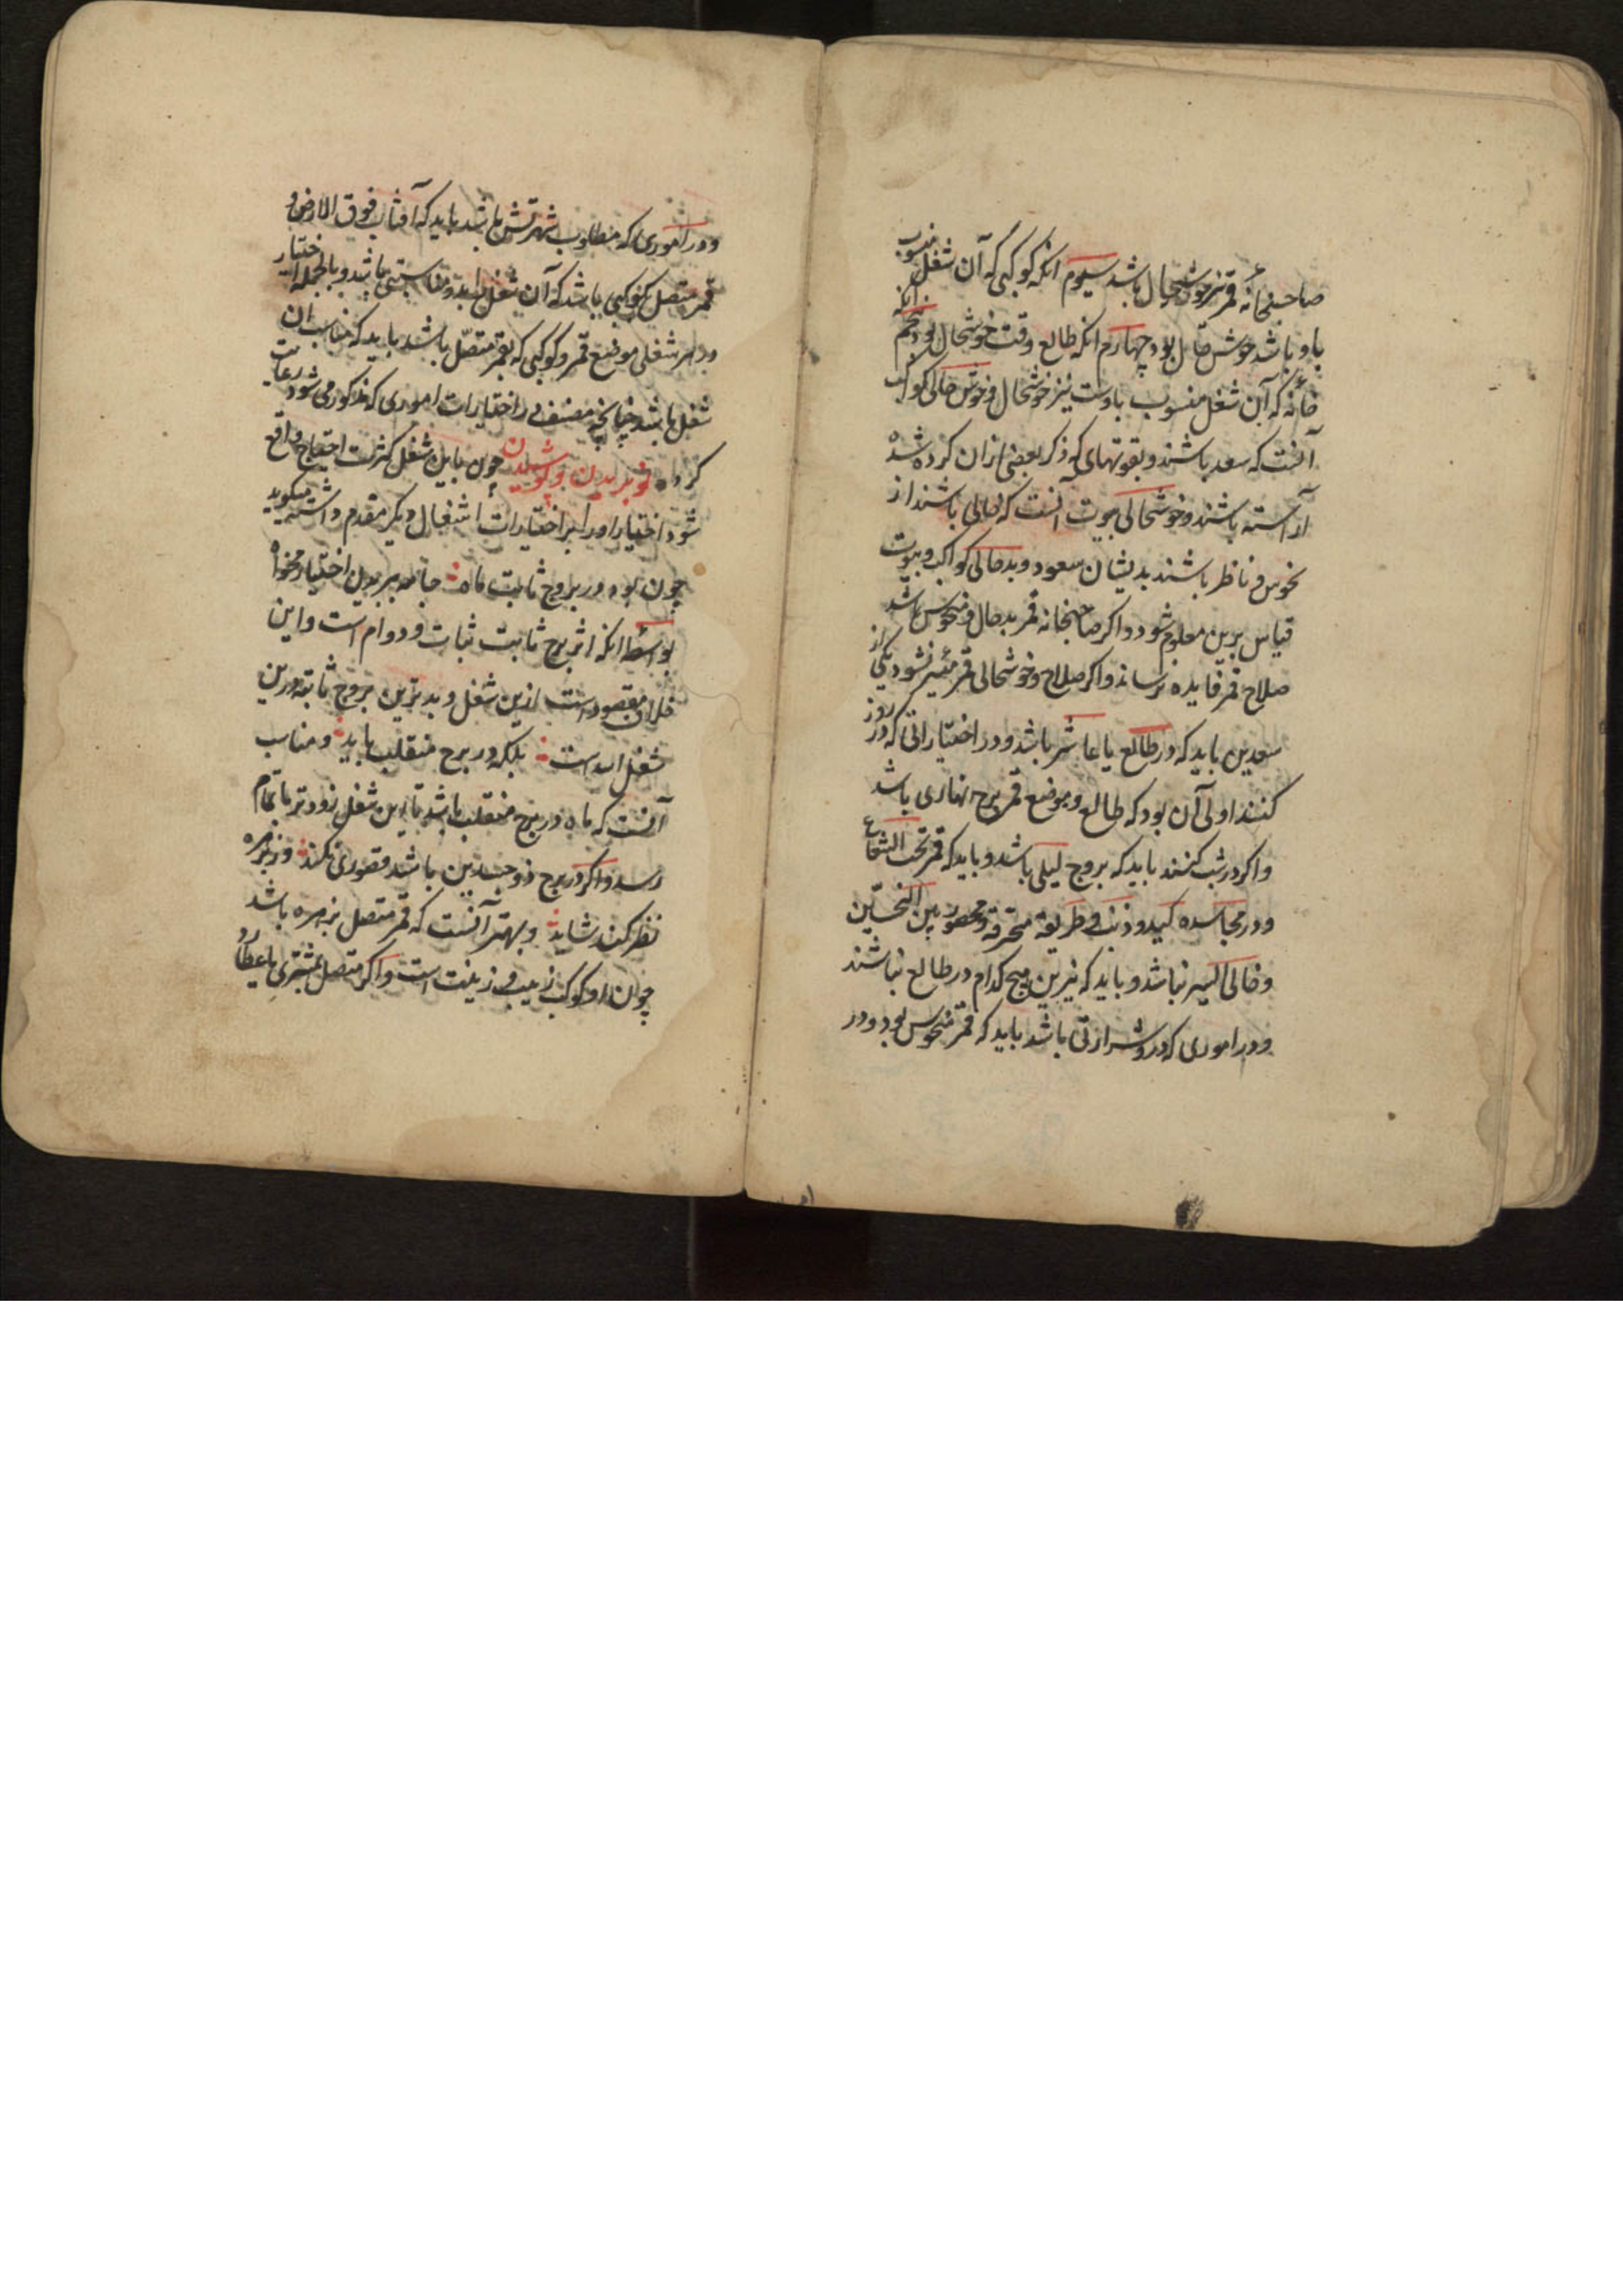 صاحبخانهٔ قمر نیز خوشحال باشد سیوم انکه کوکبی که آن شغل منسوب
باو باشد خوش حال بود چهارم انکه طالع وقت خوشحال بود پنجم انکه
خانه که آن شغل منسوب باوست نیز خوشحال و خوش حالی کواکب
آنست که سعد باشند و بقوتهای که ذکر بعضی ازان کرده شده
آراسته باشند و خوشحالی بیوت آنست که خالی باشند از
نحوس و ناظر باشند بدیشان سعود و بدحالی کواکب و بیوت
قیاس برین معلوم شود و اگر صاحبخانه قمر بدحال و منحوس باشد
صلاح قمر فایده نرساند و اگر صلاح و خوشحالی قمر میسر نشود یکی از
سعدین باید که در طالع یا عاشر باشد و در اختیاراتی که در روز
کنند اولی آن بود که طالع و موضع قمر برج نهاری باشد
و اگر در شب کنند باید که بروج لیلی باشد و باید که قمر تحت الشعاع
و در مجاسده کید و ذنب و طریقه محترقه و محصور بین النحسین
و خالی السیر نباشد و باید که نیرین هیچ کدام در طالع نباشند
و در اموری که درو شرارتی باشد باید که قمر منحوس بود و در
و در اموری که مطلوب شهرتش باشد باید که آفتاب فوق الارض و
قمر متصل بکوکبی باشد که آن شغل را بدو مناسبتی باشد و بالجمله اختیار
در هر شغلی موضع قمر و کوکبی که بقمر متصل باشد باید که مناسب ان
شغل باشد چنانچه مصنف در اختیارات اموری که مذکور می شود رعایت
کرده نو بریدن و پوشیدن چون باین شغل کثرت احتیاج واقع
شود اختیار او را بر اختیارات اشغال دیگر مقدم داشته میکوید
چون بود در بروج ثابت ماه جامه ببریدن اختیار مخواه
بواسطهٔ انکه اثر برج ثابت ثبات و دوام است و این
خلاف مقصود است ازین شغل و بدترین بروج ثابته درین
شغل اسد است بلکه در برج منقلب باید و مناسب
آنست که ماه در برج منقلب باشد تا این شغل زودتر باتمام
رسد و اگر در برج ذوجسدین باشد قصوری نکند ور بزهره
نظر کند شاید و بهتر آنست که قمر متصل بزهره باشد
چون او کوکب زیب و زینت است و اگر متصل بمشتری یا عطارد